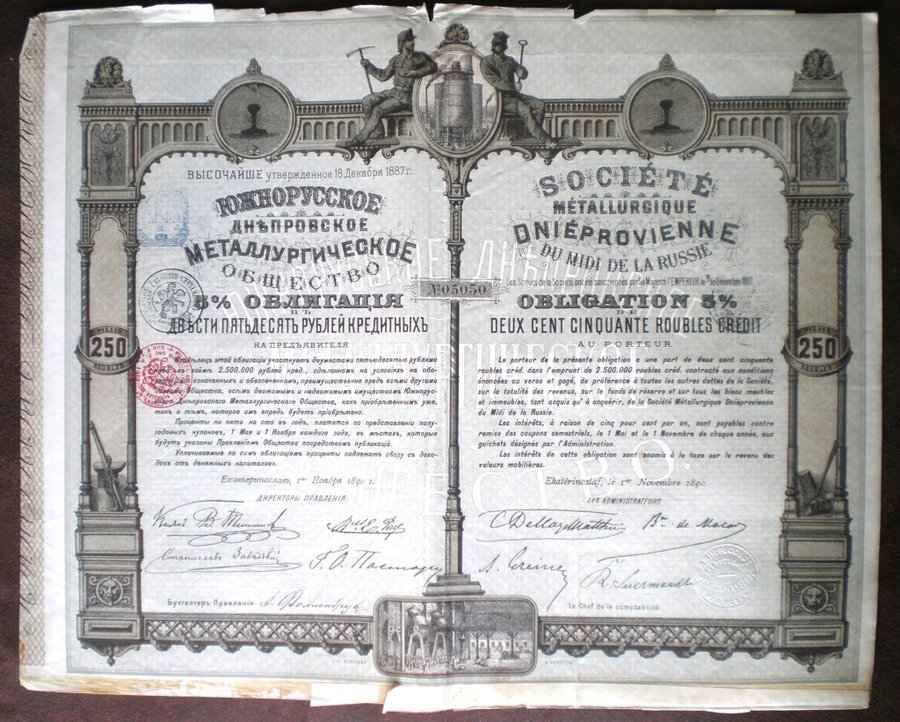 ВЫСОЧАЙШЕ утвержденное 18 Декабря 1887 г.
ЮЖНОРУССКОЕ
ДНѢПРОВСКОЕ
МЕТАЛЛУРГИЧЕСКОЕ
ОБЩЕСТВО
5% ОБЛИГАЦІЯ
ВЪ
ДВѢСТИ ПЯТЬДЕСЯТЪ РУБЛЕЙ КРЕДИТНЫХЪ
НА ПРЕДЪЯВИТЕЛЯ
250
РУБЛЕЙ
этой облигаціи участвуетъ двумястами пятьюдесятью рублями
въ займѣ 2.500.000 рублей кред., сдѣланномъ на условіяхъ на
означенномъ и обозначенномъ, преимущественно предъ всѣми другими
Общества, всѣмъ движимымъ и недвижимымъ имуществомъ Южнорус-
Днѣпровскаго Металлургическаго Общества, какъ пріобрѣтеннымъ уже,
такъ и тѣмъ, которое имъ впредь будетъ пріобрѣтено.
Проценты по пяти на сто въ годъ, платятся по представленіи полу-
годовыхъ купоновъ, 1 Мая и 1 Ноября каждаго года, въ мѣстахъ, которыя
будутъ указаны Правленіемъ Общества посредствомъ публикацій.
Уплачиваемые по симъ облигаціямъ проценты подлежатъ сбору съ дохо-
довъ отъ денежныхъ капиталовъ.
Екатеринославъ, 1го Ноября 1890 г.
ДИРЕКТОРЫ ПРАВЛЕНІЯ:
Бухгалтеръ Правленія
№ 05050
SOCIÉTÉ
MÉTALLURGIQUE
DNIÉPROVIENNE
DU MIDI DE LA RUSSIE
Les Statuts de la Société ont été sanctionnés par Sa Majesté l'EMPEREUR le 18/30 Décembre 1887.
OBLIGATION 5%
DE
DEUX CENT CINQUANTE ROUBLES CRÉDIT
AU PORTEUR
250
ROUBLES
Le porteur de la présente obligation a une part de deux cent cinquante
roubles créd. dans l'emprunt de 2.500.000 roubles créd. contracté aux conditions
énoncées au verso et gagé, de préférence à toutes les autres dettes de la Société,
sur la totalité des revenus, sur le fonds de réserve et sur tous les biens meubles
et immeubles, tant acquis qu'à acquérir, de la Société Métallurgique Dniéprovienne
du Midi de la Russie.
Les intérêts, à raison de cinq pour cent par an, sont payables contre
remise des coupons semestriels, le 1 Mai et le 1 Novembre de chaque année, aux
guichets désignés par l'Administration.
Les intérêts de cette obligation sont soumis à la taxe sur le revenu des
valeurs mobilières.
Ekatérinoslaf, le 1er Novembre 1890.
LES ADMINISTRATEURS
Le Chef de la comptabilité